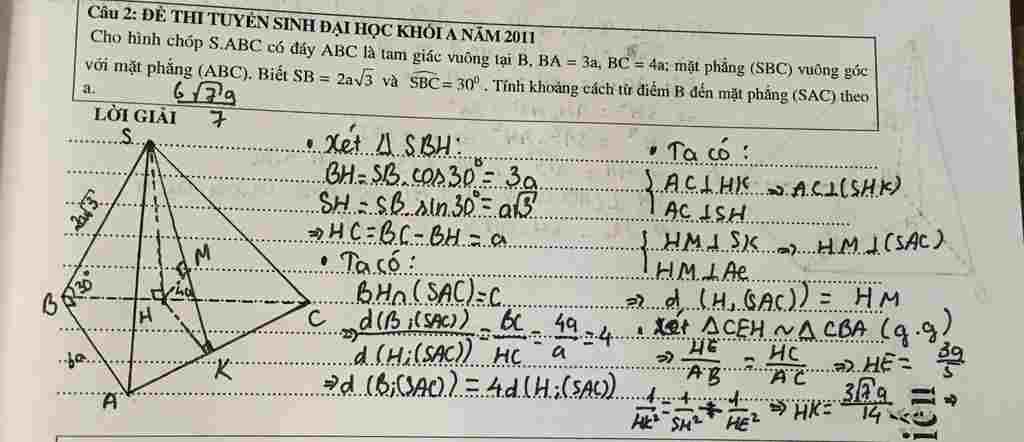 Câu 2: ĐỀ THI TUYỂN SINH ĐẠI HỌC KHỐI A NĂM 2011
Cho hình chóp S.ABC có đáy ABC là tam giác vuông tại B, BA = 3a, BC = 4a; mặt phẳng (SBC) vuông góc
với mặt phẳng (ABC). Biết SB = 2a√3 và SBC = 30⁰. Tính khoảng cách từ điểm B đến mặt phẳng (SAC) theo
a. 6√7a/7
LỜI GIẢI
S
2a√3
B 30° H 4a M C
3a
K
A
• Xét Δ SBH:
BH = SB.cos30° = 3a
SH = SB.sin30° = a√3
⇒ HC = BC - BH = a
• Ta có:
BH∩(SAC) = C
⇒ d(B;(SAC))/d(H;(SAC)) = BC/HC = 4a/a = 4
⇒ d(B;(SAC)) = 4d(H;(SAC))
• Ta có:
{ AC⊥HK ⇒ AC⊥(SHK)
AC⊥SH
{ HM⊥SK ⇒ HM⊥(SAC)
HM⊥AC
⇒ d(H,(SAC)) = HM
• Xét ΔCEH ~ ΔCBA (g.g)
⇒ HE/AB = HC/AC ⇒ HE = 3a/5
1/HK² = 1/SH² + 1/HE² ⇒ HK = 3√7a/14 ⇒